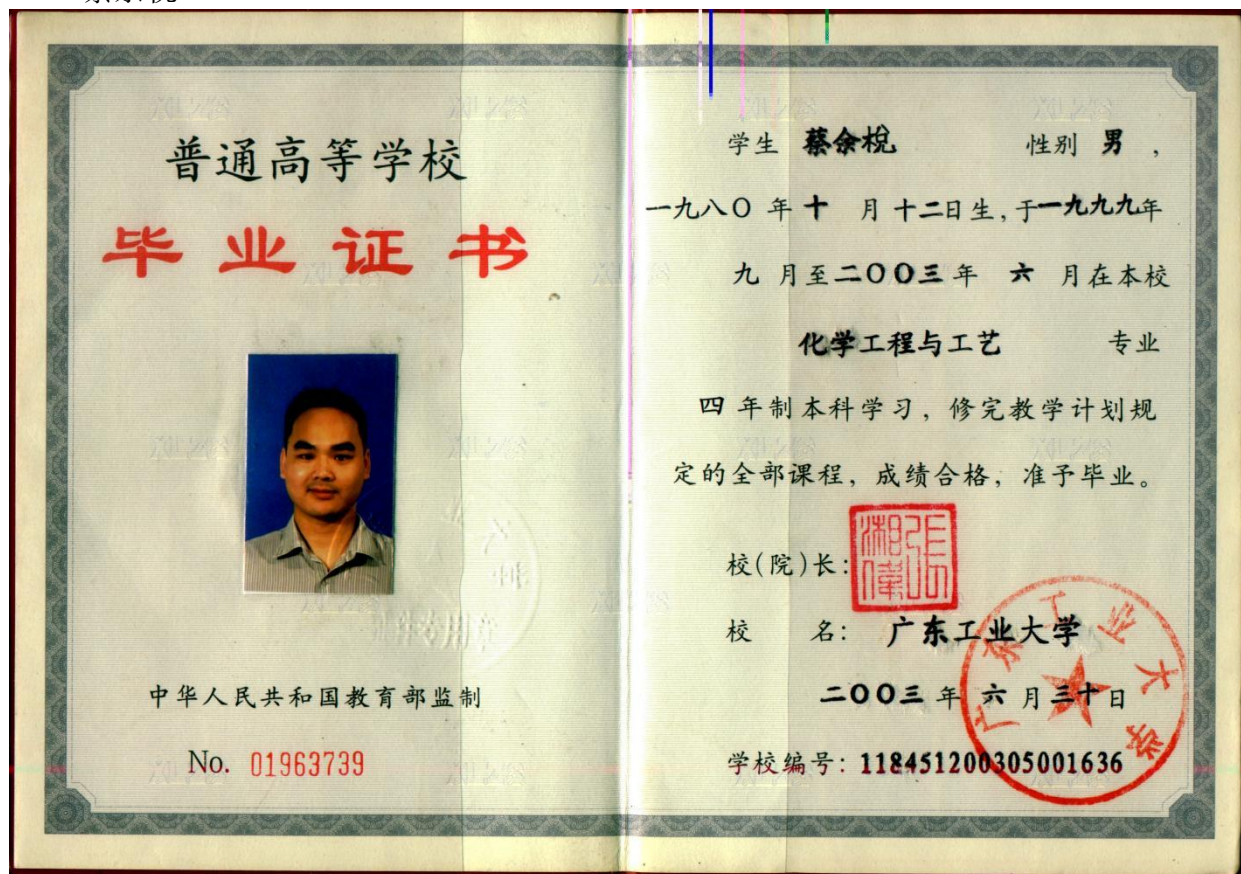 普通高等学校
毕业证书
中华人民共和国教育部监制
No. 01963739
学生 蔡余棁 性别 男，
一九八〇年十月十二日生，于一九九九年
九月至二〇〇三年六月在本校
化学工程与工艺 专业
四年制本科学习，修完教学计划规
定的全部课程，成绩合格，准予毕业。
校(院)长：
张湘偉
校名：广东工业大学
二〇〇三年六月三十日
学校编号：118451200305001636
广东工业大学